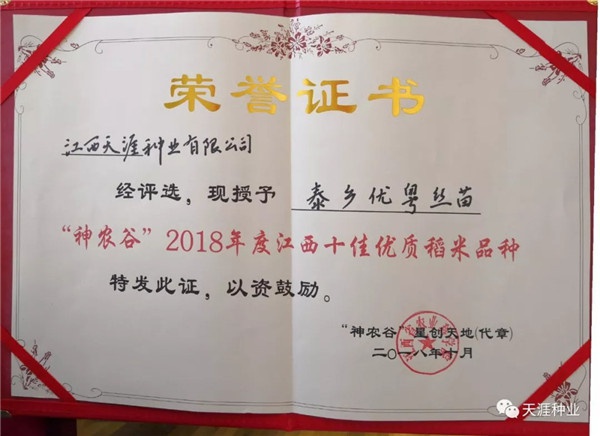 荣誉证书
江西天涯种业有限公司
经评选，现授予 泰乡优粤丝苗
“神农谷”2018年度江西十佳优质稻米品种
特发此证，以资鼓励。
“神农谷”星创天地(代章)
二〇一八年十月
天涯种业